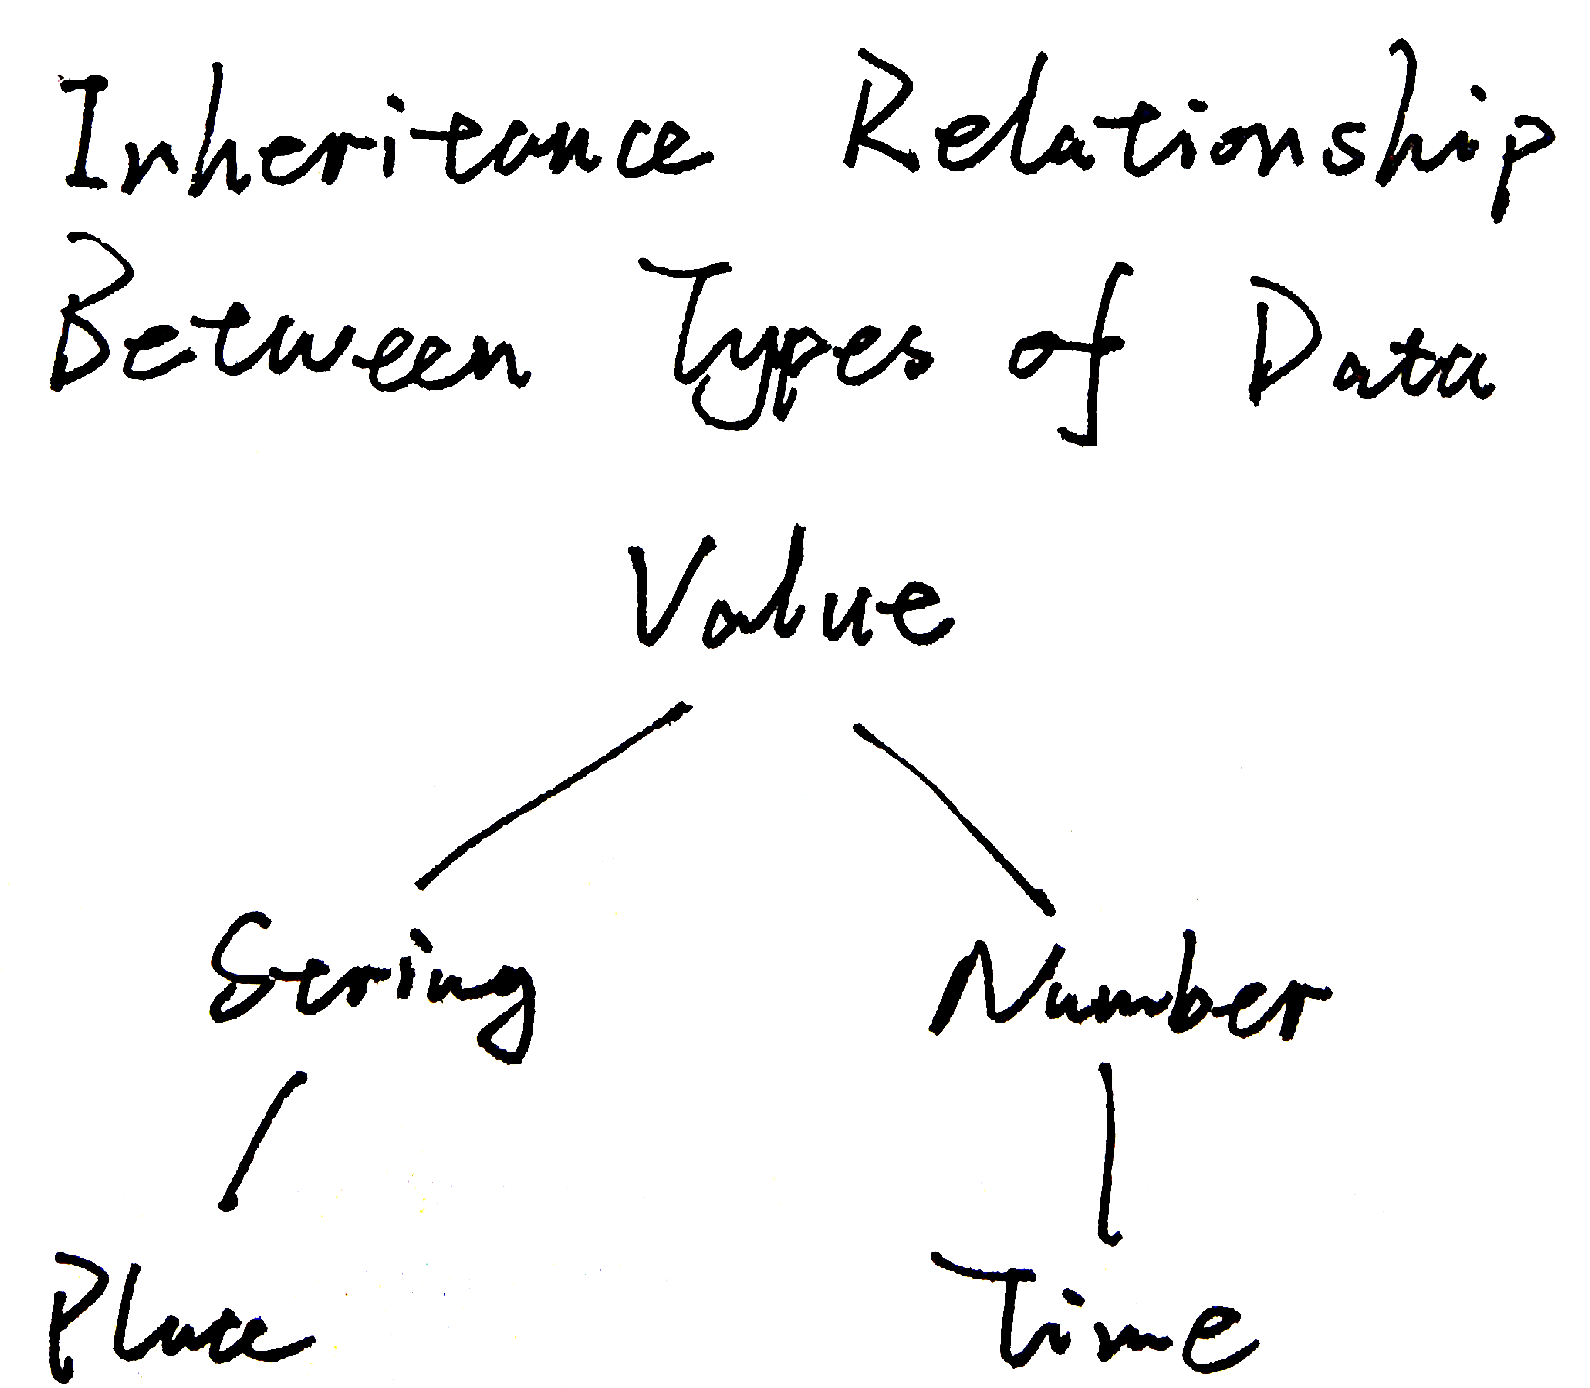 Inheritance Relationship
Between Types of Data
Value
String Number
Place Time